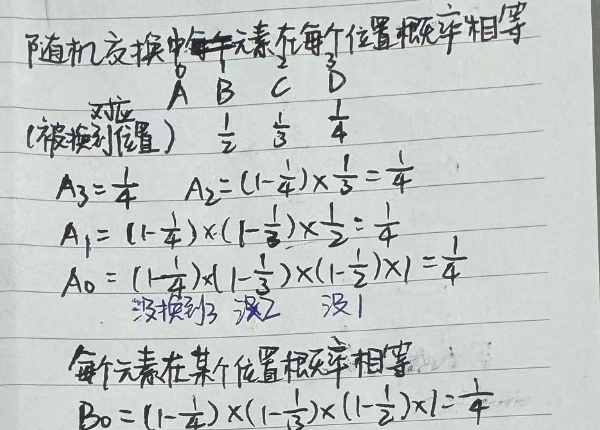 随机交换中每个元素在每个位置概率相等
0 2 3
A B C D
对应
(被换到位置) 1/2 1/3 1/4
A₃=1/4 A₂=(1-1/4)×1/3=1/4
A₁=(1-1/4)×(1-1/3)×1/2=1/4
A₀=(1-1/4)×(1-1/3)×(1-1/2)×1=1/4
没换到3 没2 没1
每个元素在某个位置概率相等
B₀=(1-1/4)×(1-1/3)×(1-1/2)×1=1/4